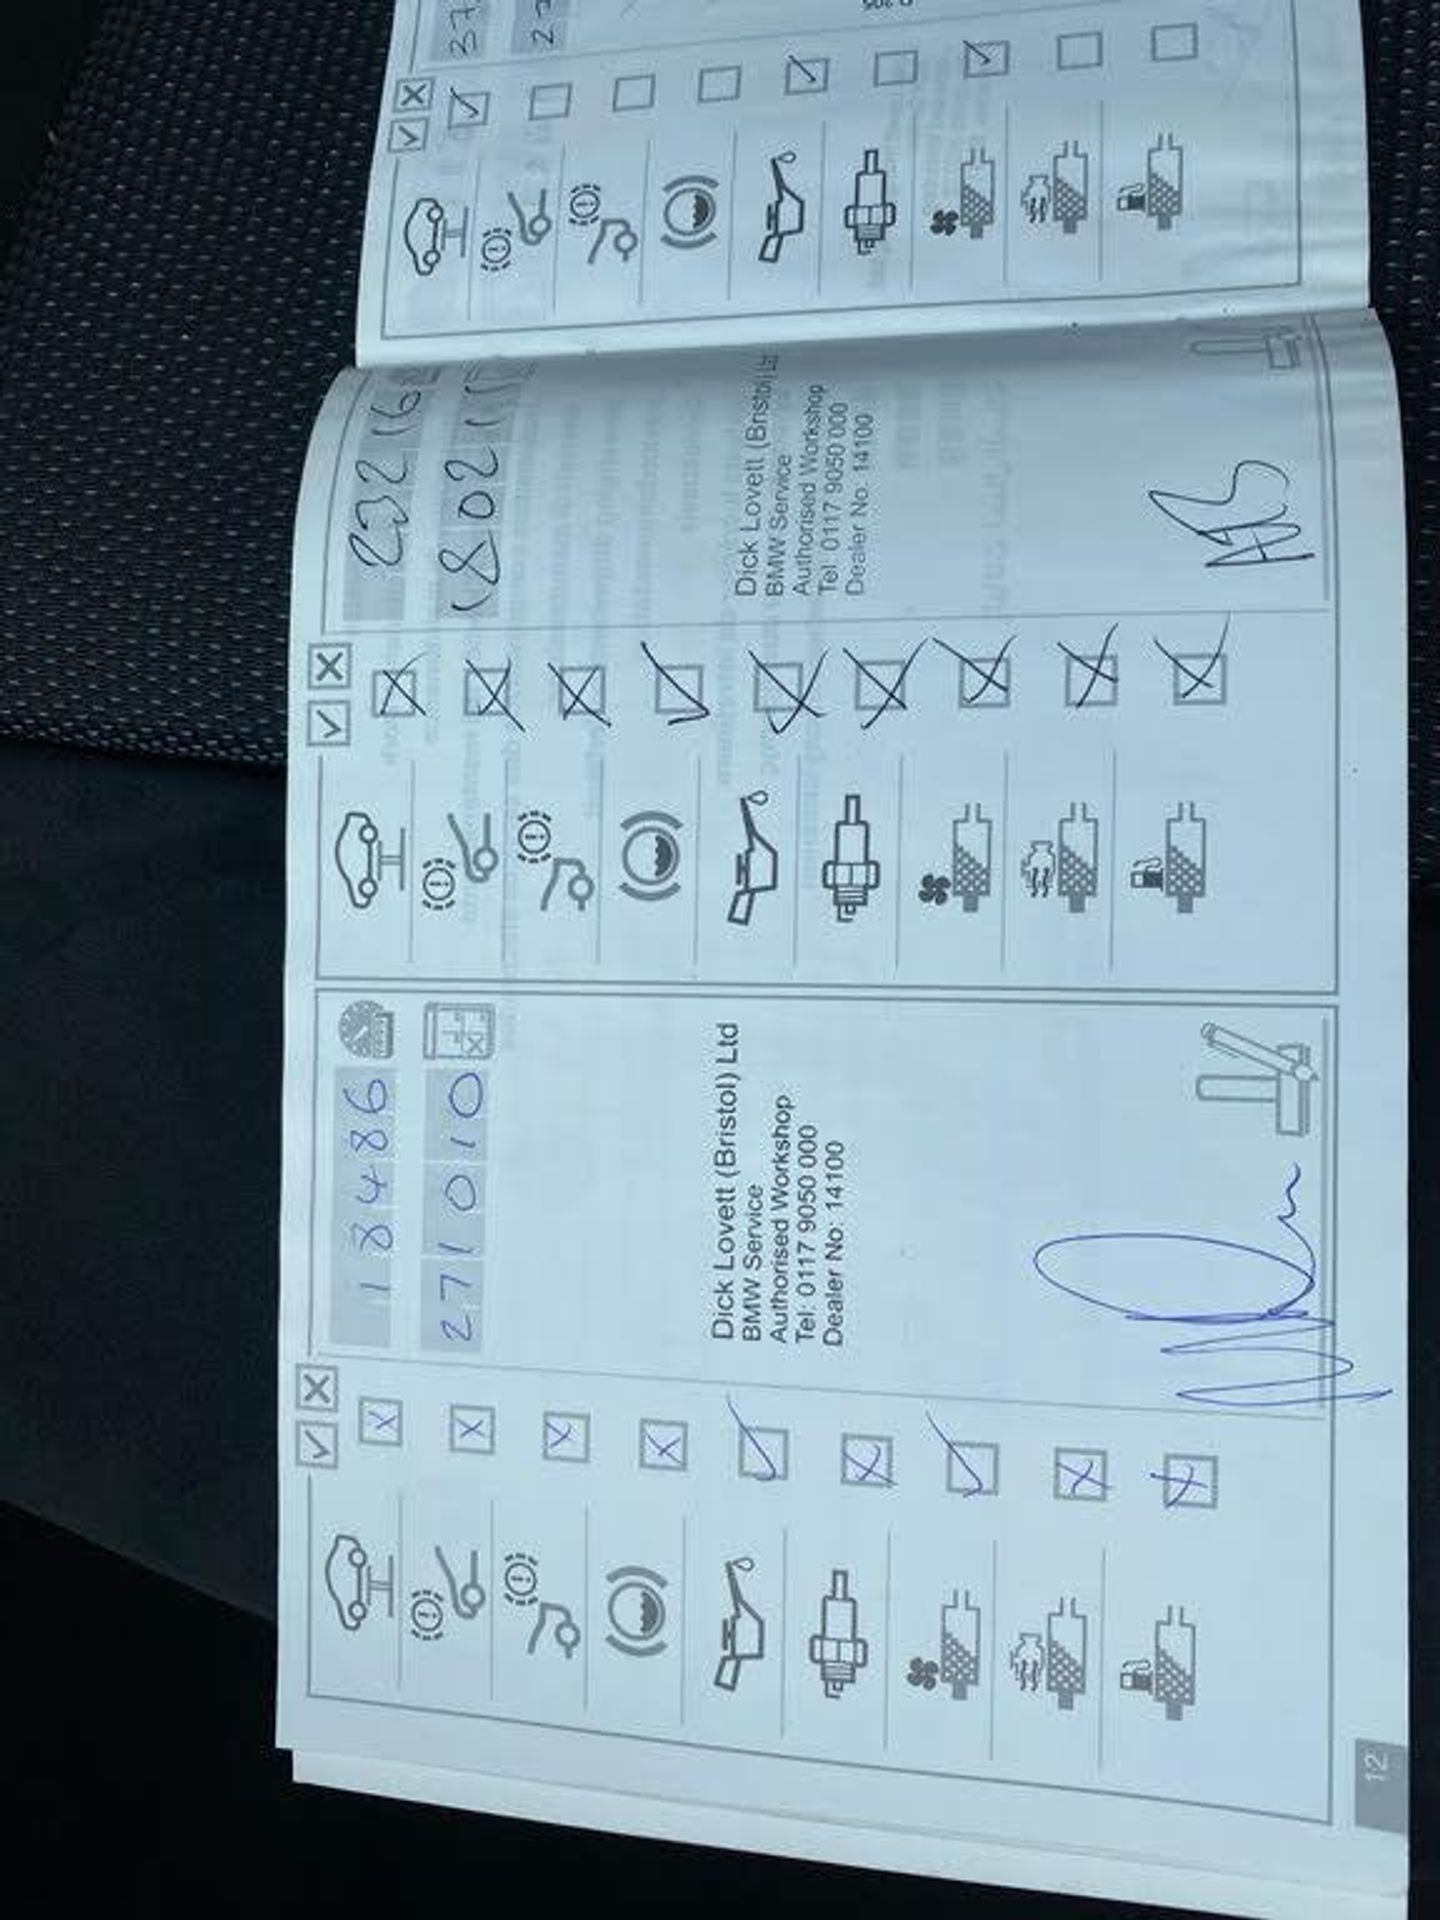 18486
271010
Dick Lovett (Bristol) Ltd
BMW Service
Authorised Workshop
Tel: 0117 9050 000
Dealer No: 14100
12
23216
180211
Dick Lovett (Bristol) Ltd
BMW Service
Authorised Workshop
Tel: 0117 9050 000
Dealer No: 14100
37
27